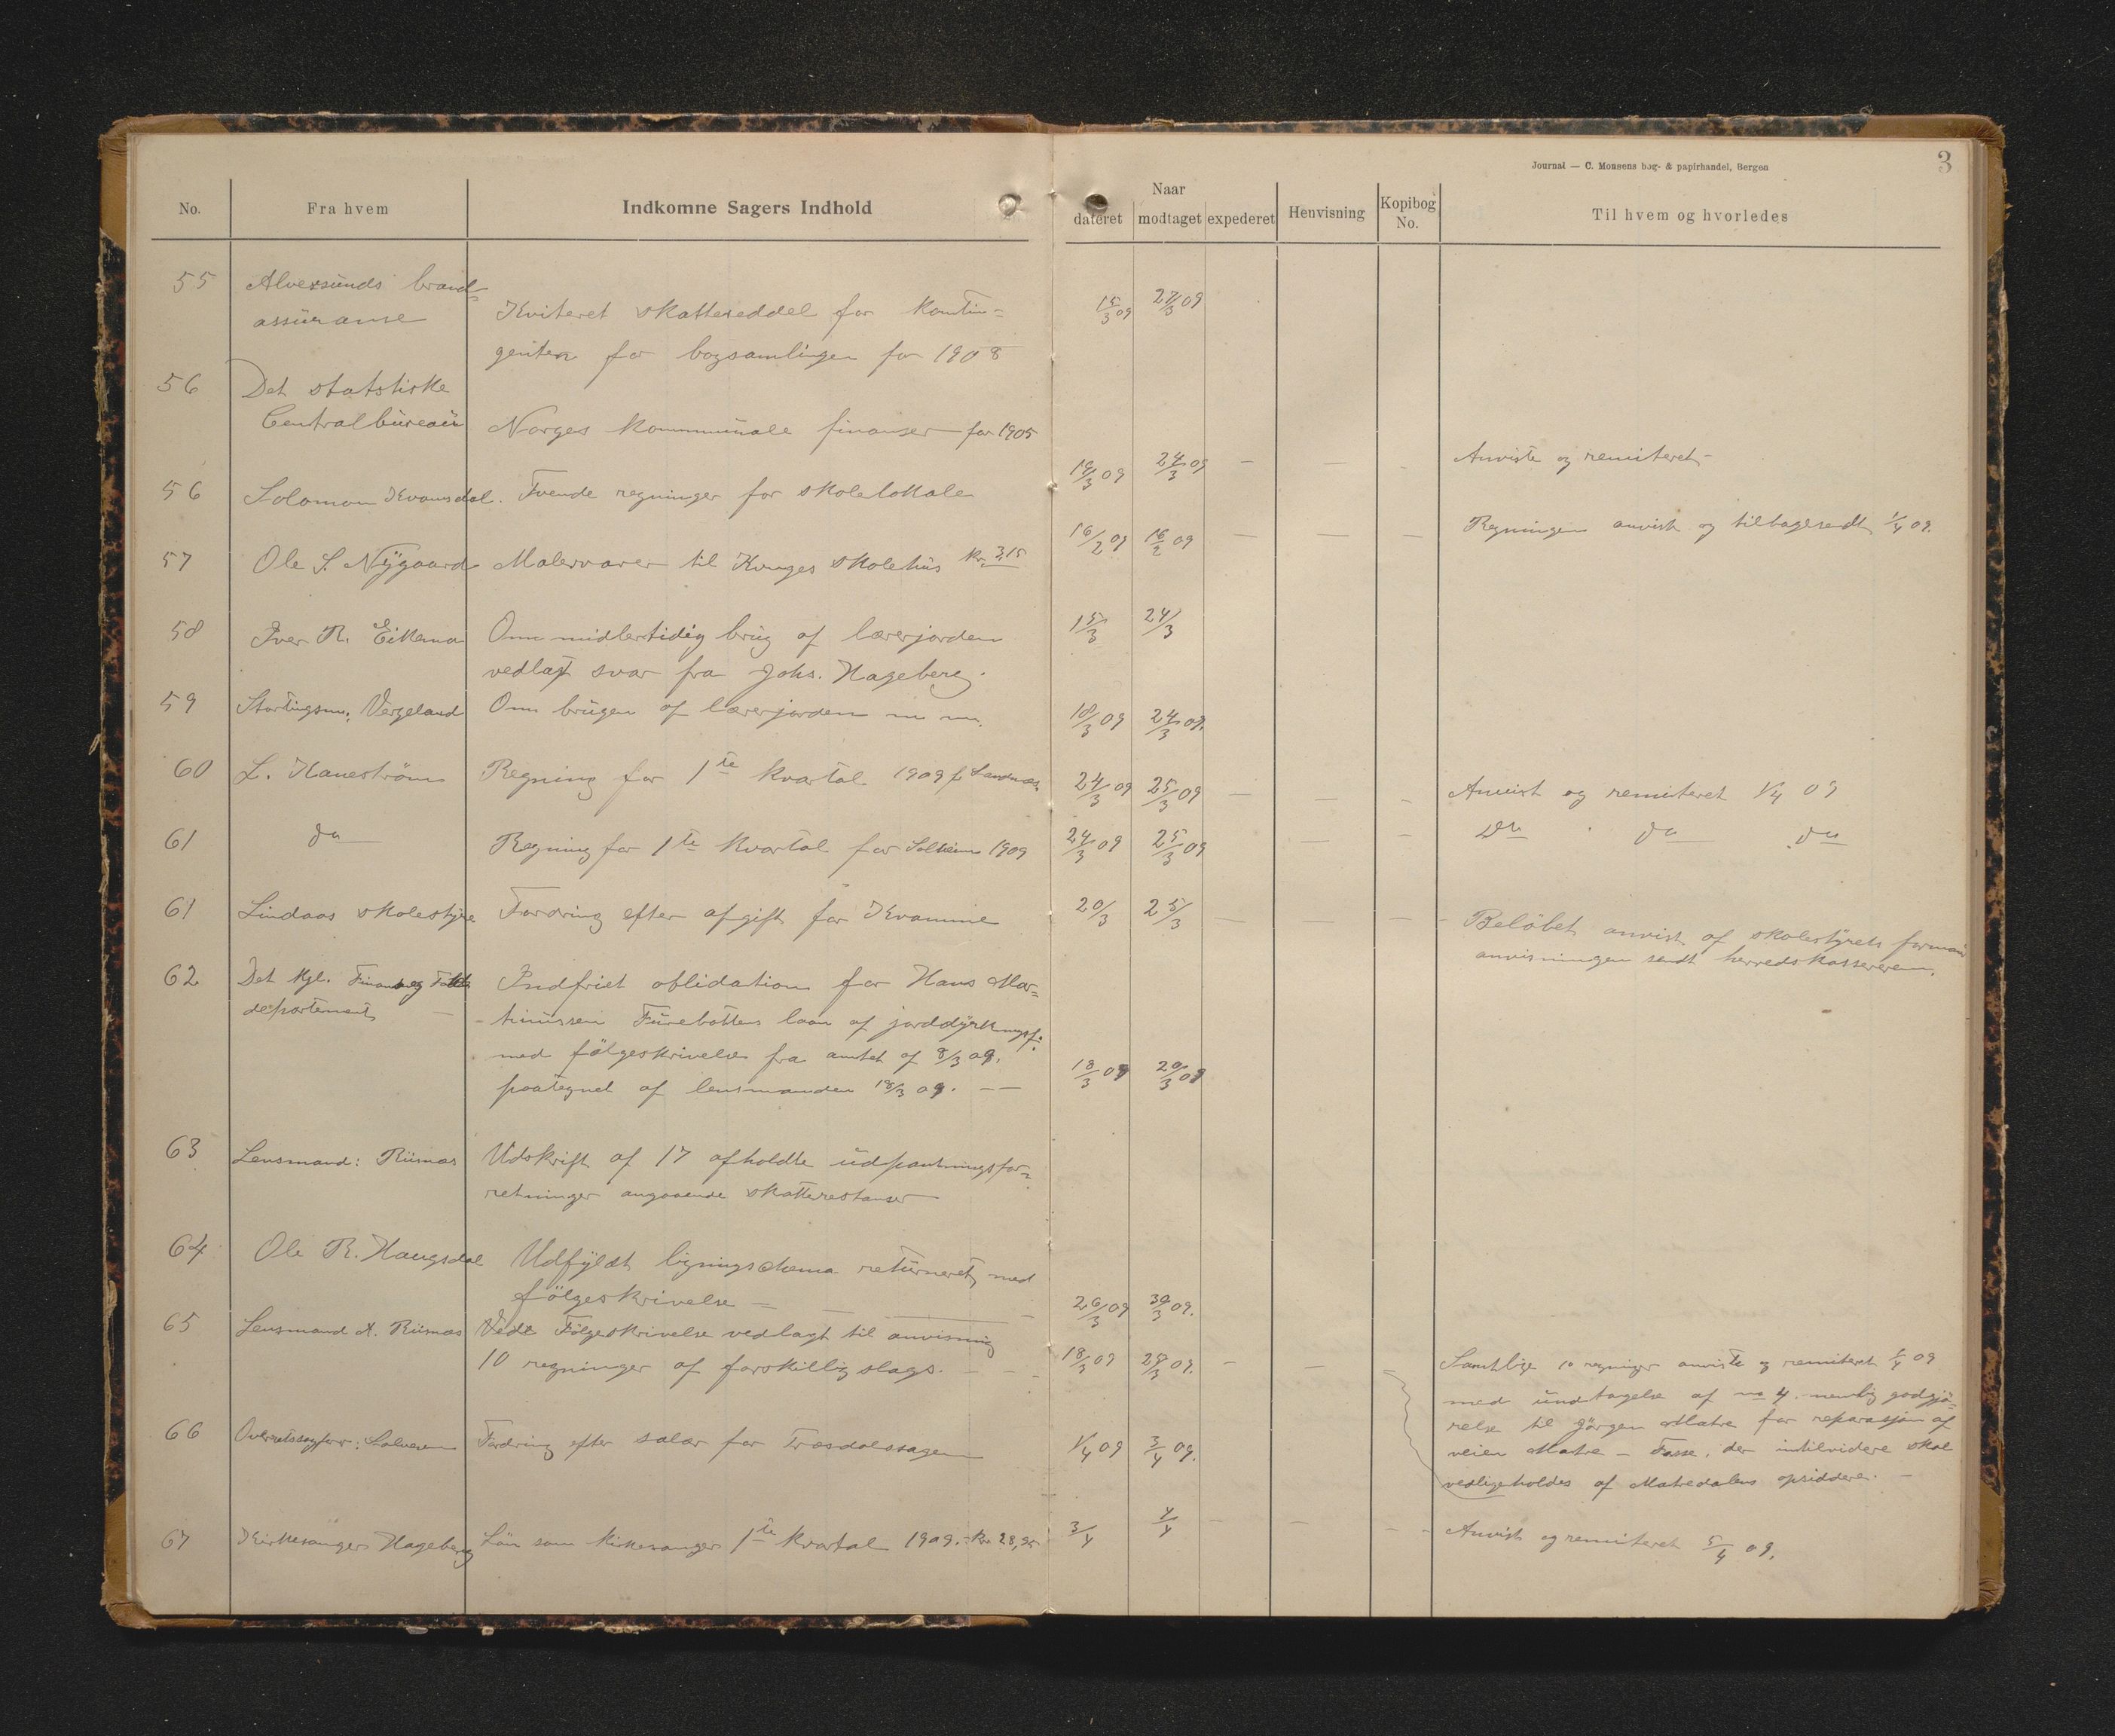 Journal — C. Monsens bog- & papirhandel, Bergen
3
No.
Fra hvem
Indkomne Sagers Indhold
Naar
dateret
modtaget
expederet
Henvisning
Kopibog No.
Til hvem og hvorledes
55 Alversunds brand-
assüranse Kviteret skatteseddel for kontin= 15/3 09 27/3 09
genten for bogsamlingen for 1908
56 Det statstiske
Centralbüreaü Norges kommunale finanser for 1905
19/3 09 24/3 09 — — — Anviste og remiteret —
56 Solomon Kvamsdal. Tvende regninger for skolelokale
16/2 09 16/2 09 — — — Regningen anvist og tilbagesendt 1/4 09.
57 Ole S. Nÿgaard Malervarer til Kvinges skolehüs kr. 3,15
58 Iver R. Eikemo Om midlertidig brüg af lærerjorden 15/3 24/3
vedlagt svar fra Johs. Hageberg.
59 Stortingsm. Vergeland Om brügen af lærerjorden m m. 18/3 09 24/3 09.
60 L. Haneström Regning for 1te kvartal 1909 f. Sandnes. 24/3 09 25/3 09 — — — Anvist og remiteret 1/4 09
61 do Regning for 1te kvartal for Solheim 1909 24/3 09 25/3 09 — — Do do do
61 Lindaas skolestyre Fordring efter afgift for Kvamme 20/3 25/3 — — — Beløbet anvist af skolestÿrets formand
anvisningen sendt herredskassereren.
62 Det kgl. Finans og Told
departement — Indfriet oblidation for Hans Mar=
tinüssen Fürebottens laan af jorddÿrkningsf.
med følgeskrivelse fra amtet af 8/3 09.
paategnet af lensmanden 18/3 09. — — 18/3 09 20/3 09
63 Lensmand: Riisnæs Udskrift af 17 afholdte üdpantningsfor=
retninger angaaende skatterestanser
64 Ole R. Haugsdal Udfÿldt ligningschema retürneret med
følgeskrivelse — 26/3 09 30/3 09.
65 Lensmand A. Riisnæs Vedl Følgeskrivelse vedlagt til anvisning
10 regninger af forskillig slags. — — 18/3 09 29/3 09. — — — Samtlige 10 regninger anviste og remiteret 5/4 09
med ündtagelse af no 4. nemlig godgjö=
relse til Jörgen Matre for reparasjon af
veien Matre — Fosse, der intilvidere skal
vedligeholdes af Matredalens opsiddere. —
66 Overretssagfører: Salvesen Fordring efter salær for Træsdalssagen 1/4 09 3/4 09.
67 Kirkesanger Hageberg Lön som kirkesanger 1te kvartal 1909. kr. 28,95 3/4 4/4 — — — Anvist og remiteret 5/4 09.